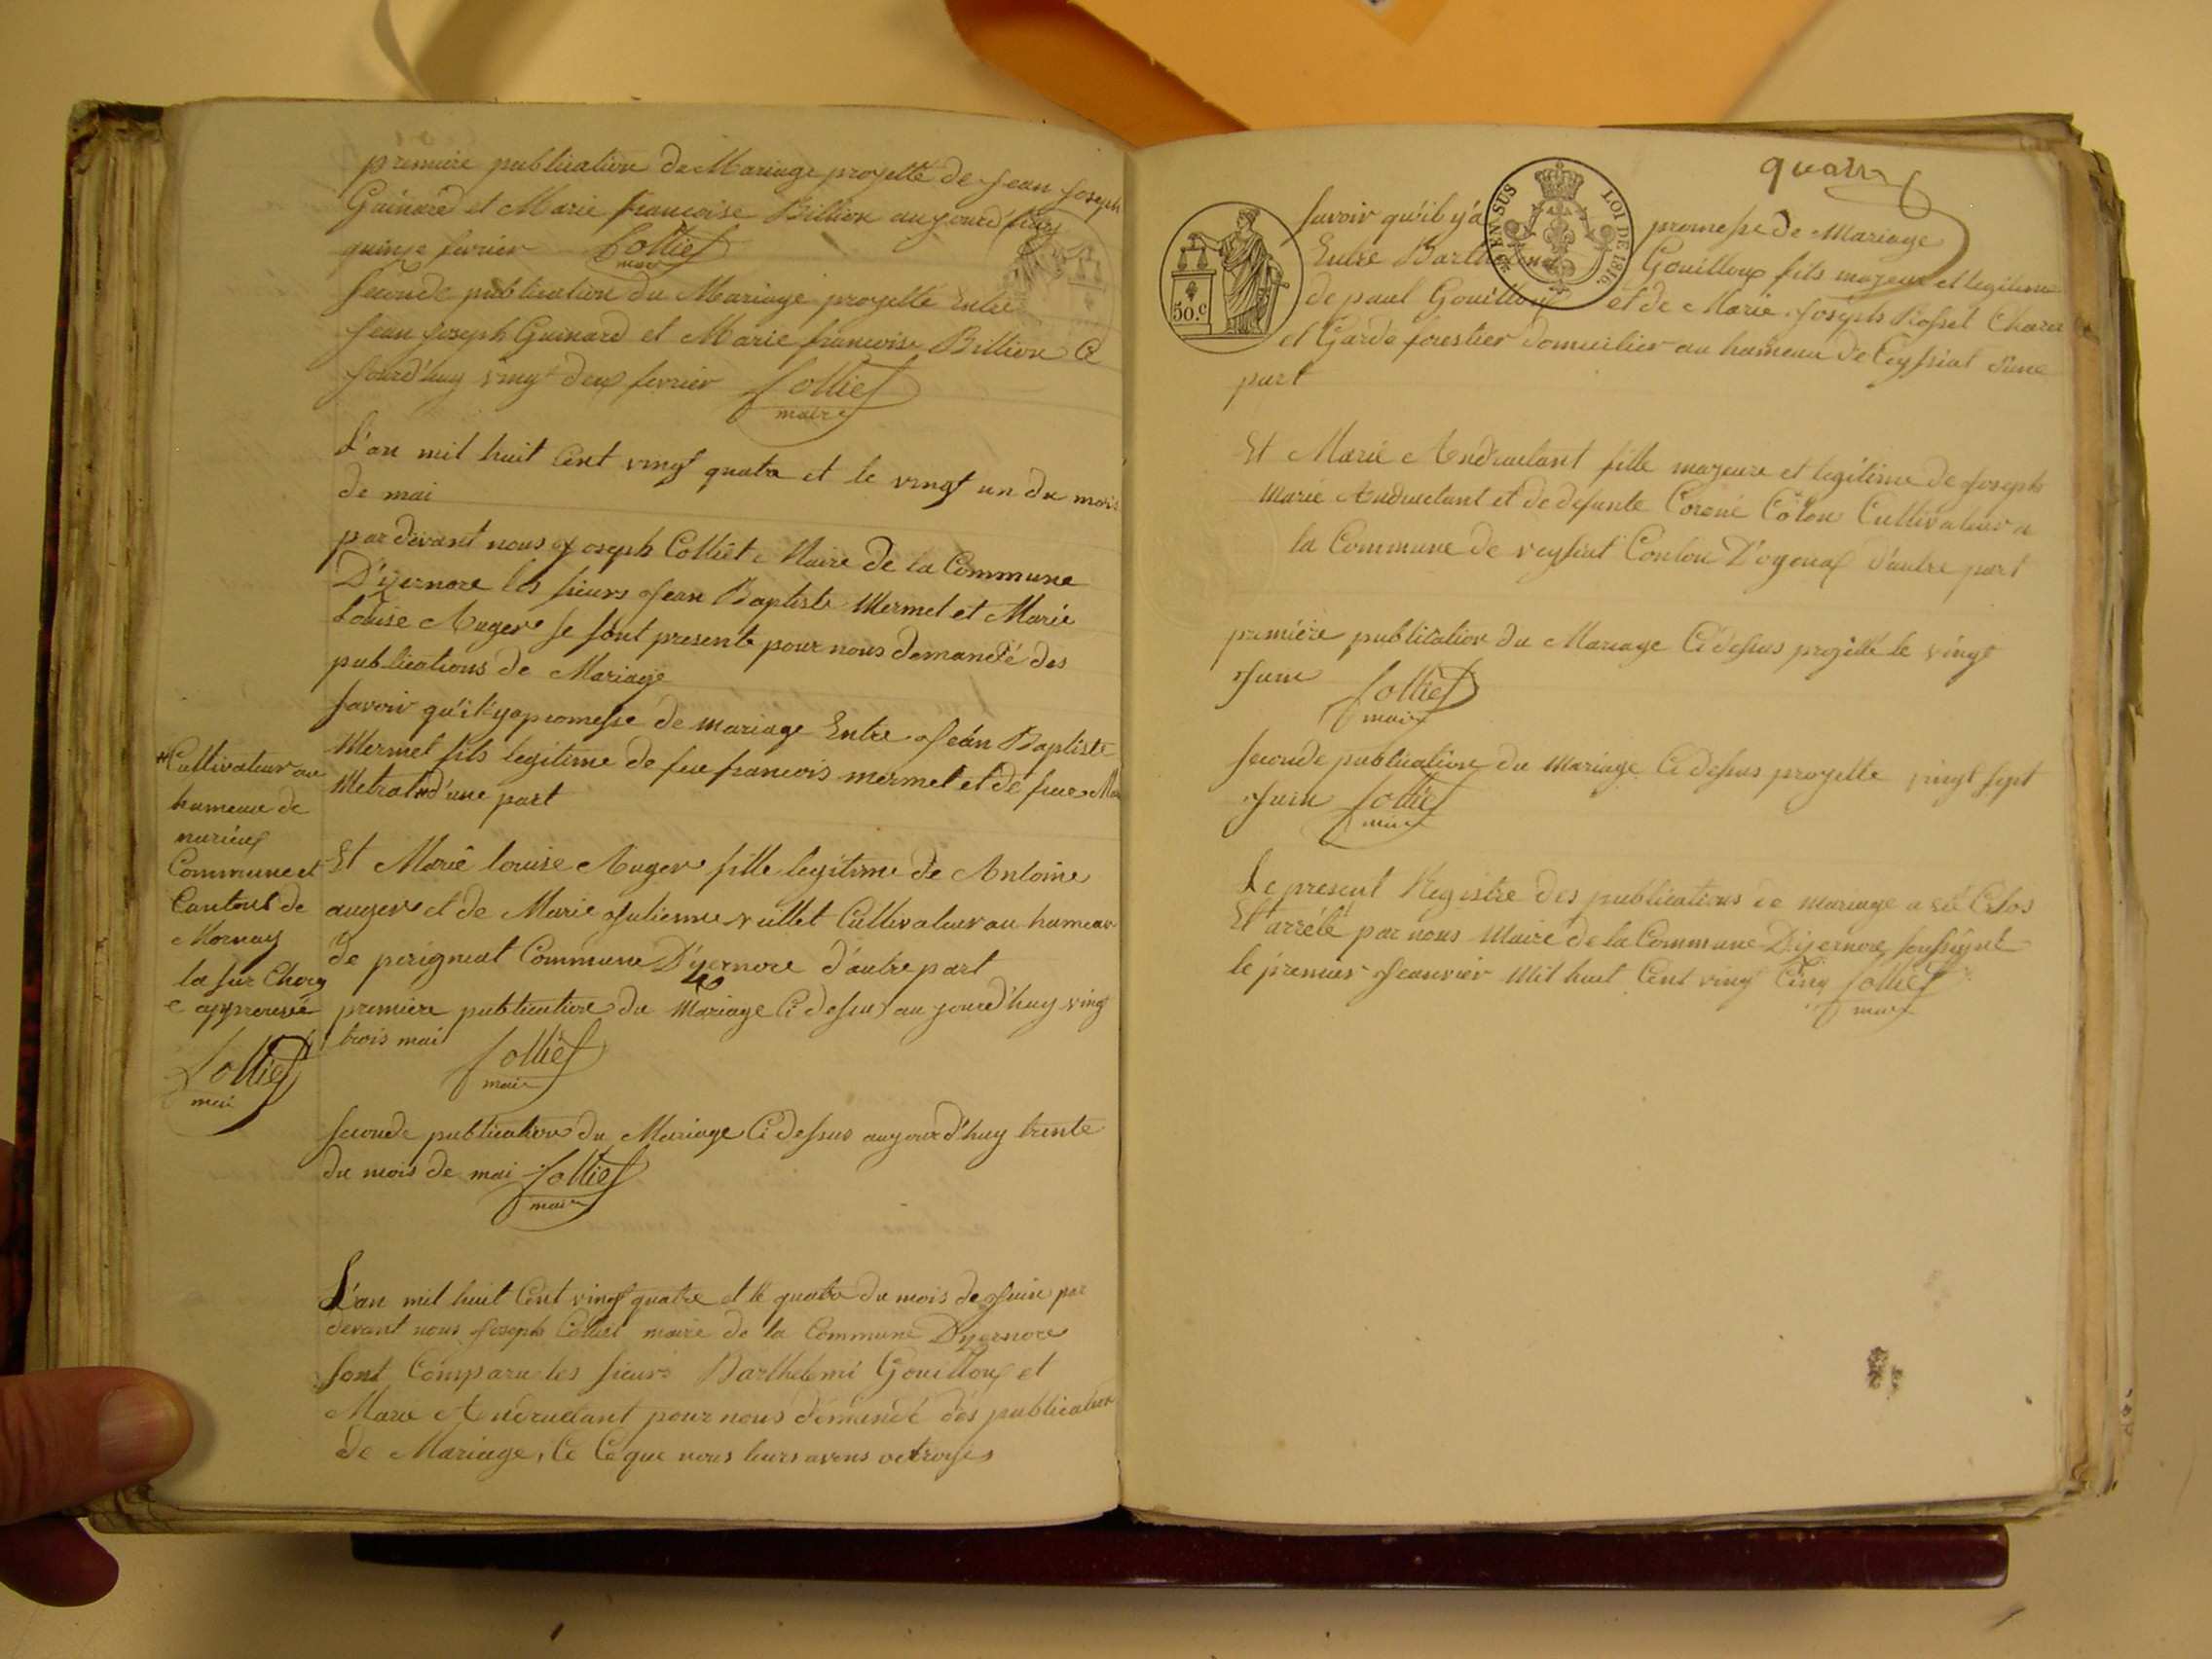 premiere publication du Mariage projetté de Jean Joseph
Guinard et Marie francoise Billion aujourd'huy
quinze fevrier Colliet
maire
Seconde publication du Mariage projetté Entre
Jean Joseph Guinard et Marie francoise Billion Ce
Jourd'huy vingt deux fevrier Colliet
maire
L'an mil huit Cent vingt quatre et le vingt un du mois
de mai
pardevant nous Joseph Colliet Maire de la Commune
D'izernore les sieurs Jean Baptiste Mermet et Marie
Louise Auger se sont presenté pour nous demandé des
publications de Mariage
Savoir qu'il y a promesse de mariage Entre Jean Baptiste
Mermet fils legitime de feu francois mermet et de feue
Metral d'une part
Cultivateur au
hameau de
Commune et
Canton de
Mornay
la sur Charg
e approuvé
Colliet
mai
Et Marie Louise Auger fille legitime de Antoine
auger et de Marie Julienne vuillet Cultivateur au hameau
de perignat Commune D'yernore d'autre part
premiere publication du Mariage Ci dessus aujourd'huy vingt
trois mai Colliet
maire
Seconde publication du Mariage Ci dessus aujourd'huy trente
du mois de mai Colliet
maire
L'an mil huit Cent vingt quatre et le quatre du mois de Juin par
devant nous Joseph Colliet maire de la Commune Dyzernore
sont Comparu les sieurs Barthelemi Gouilloux et
Marie Andruetant pour nous demandé des publication
de Mariage, Ce Ceque nous leurs avons octroyés
quatre
EN SUS
LOI DE 1816.
50.c
Savoir qu'il y'a promesse de Mariage
Entre Barthelemi Gouilloux fils majeur et legitime
de paul Gouilloux et de Marie Joseph Rosset
et Garde forestier domicilier au hameau de Ceyssiat d'une
part
Et Marie Andruetant fille majeure et legitime de Joseph
Marie Andruetant et de defunte Colon Cultivateur a
la Commune de veyziat Canton D'oyonax d'autre part
premiere publication du Mariage Ci dessus projetté le vingt
Juin Colliet
maire
Seconde publication du Mariage Ci dessus projetté vingt sept
Juin Colliet
maire
Le present Registre des publications de mariage a été Clos
Et arrété par nous Maire de la Commune Dizernore soussigné
le premier Jeanvier Mil huit Cent vingt Cinq Colliet
maire